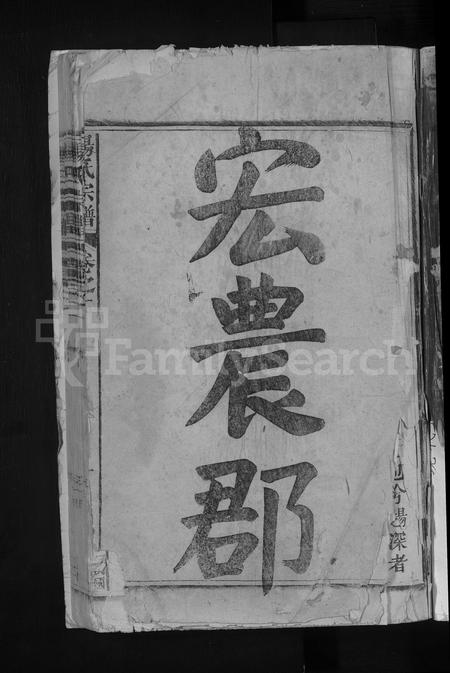 宏農郡
楊氏宗譜
卷之
楊深者
FamilySearch